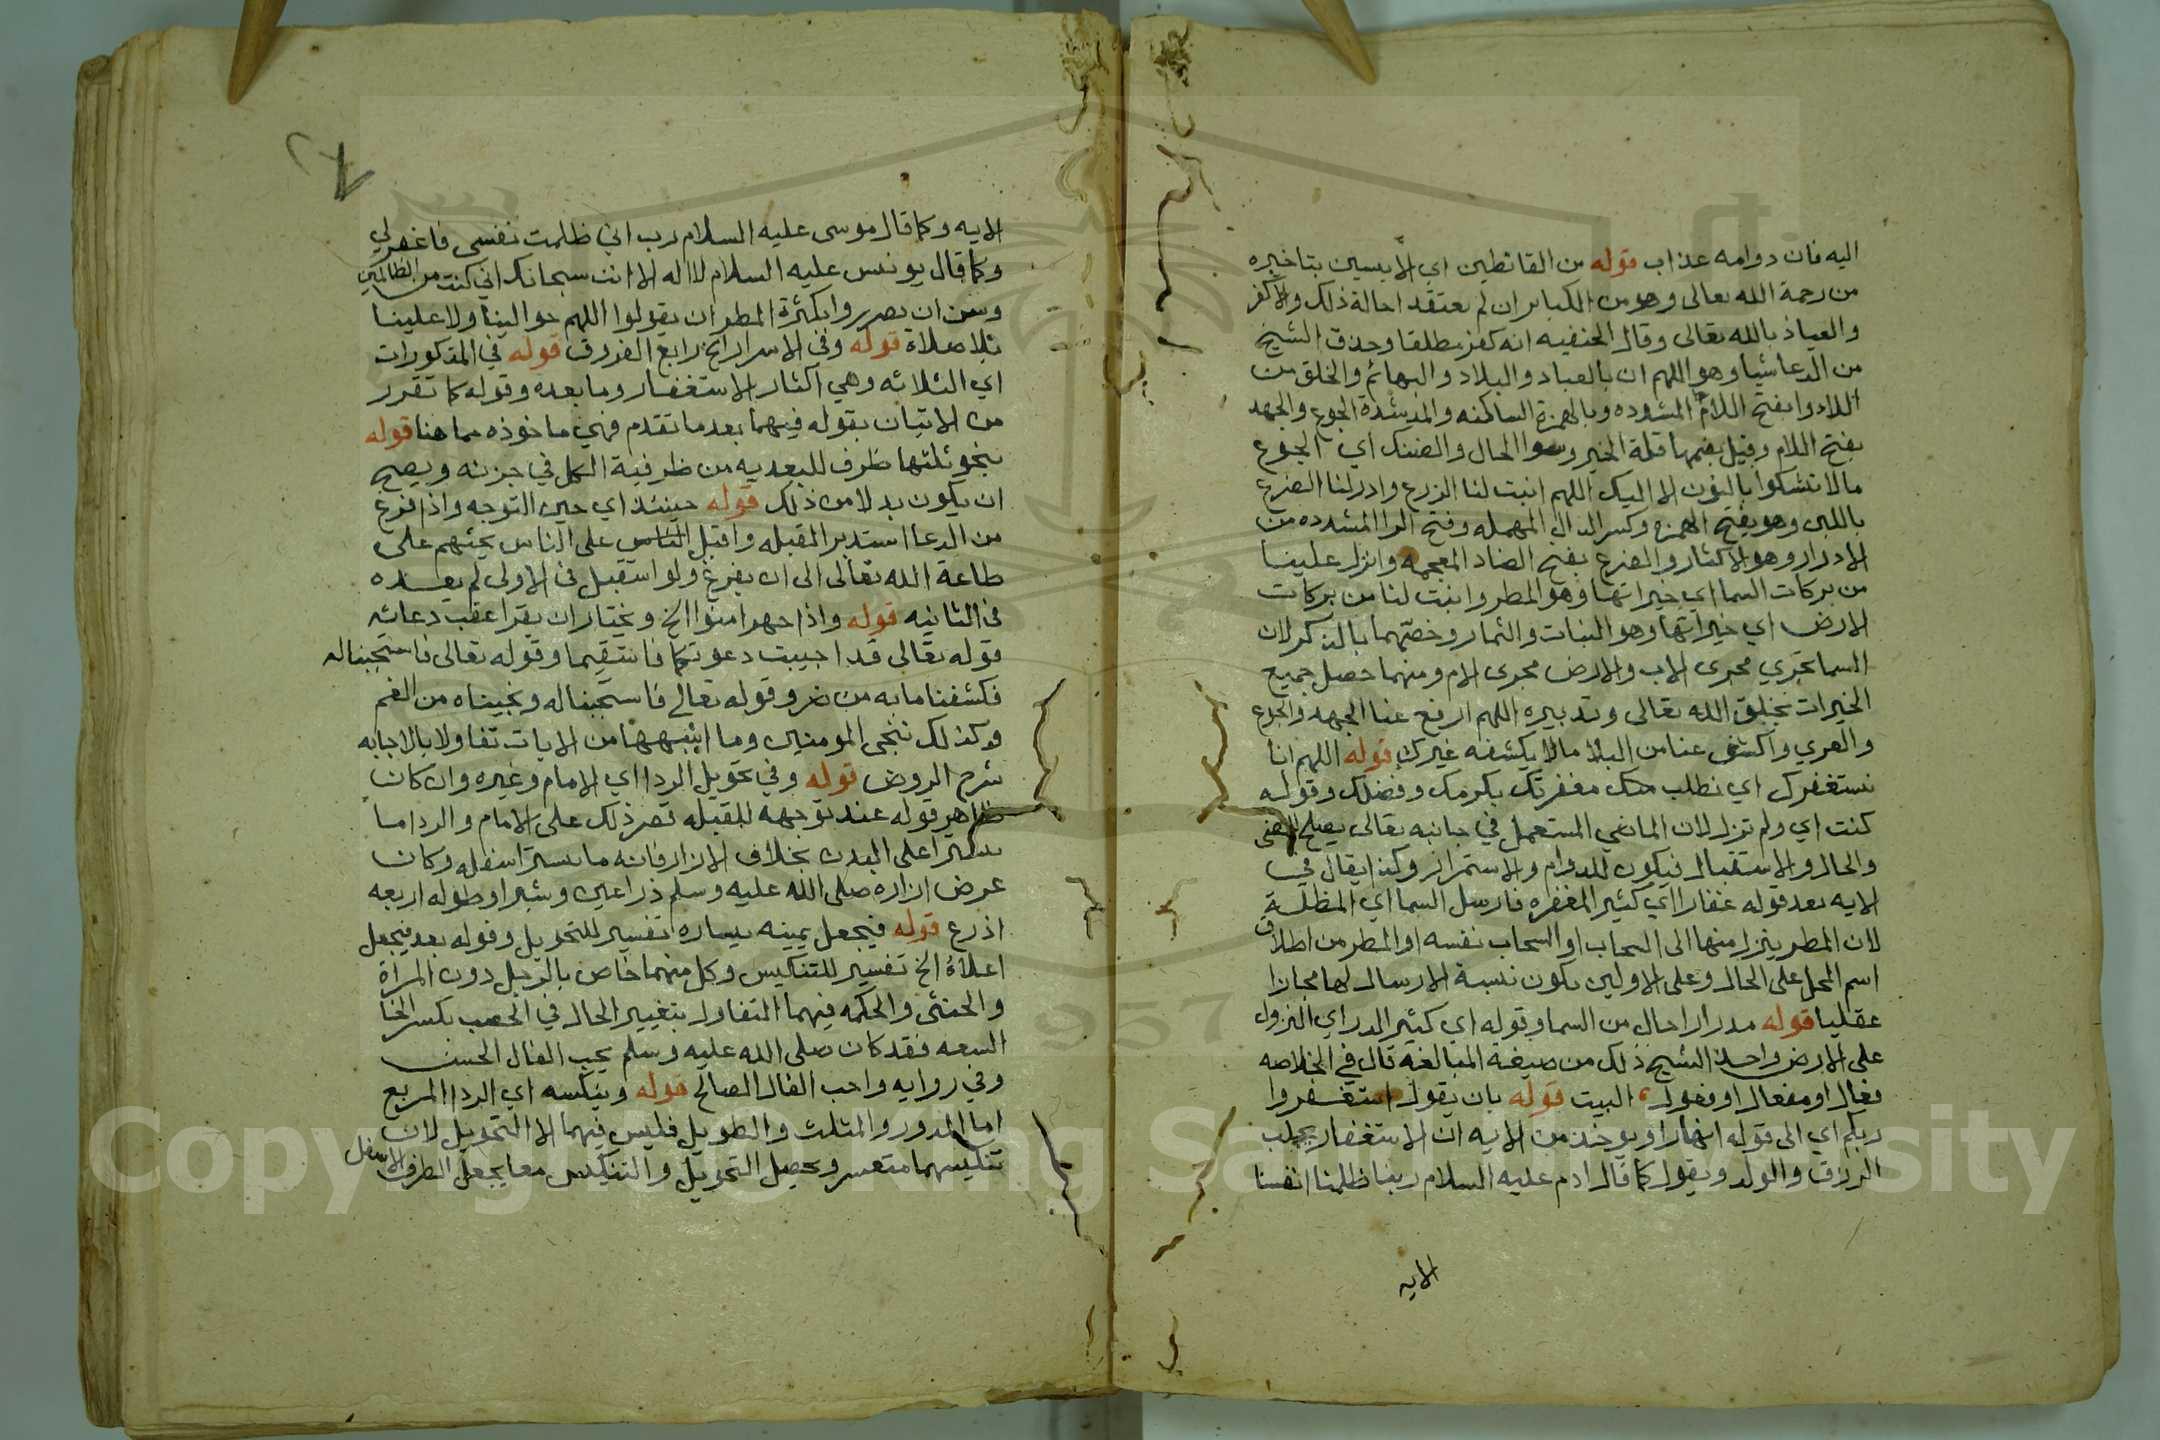 اليه فان دوامه عذاب قوله من القانطين اي الايسين بتاخيره
من رحمة الله تعالى وهو من الكبائر ان لم يعتقد احالة ذلك والا كفر
والعياذ بالله تعالى وقال الحنفيه انه كفر مطلقا وحذف الشيخ
من الدعا شيا وهو اللهم ان بالعباد والبلاد والبهائم والخلق من
اللاوا بفتح اللام المشدده وبالهمزة الساكنه والمد شدة الجوع والجهد
بفتح اللام وقيل بضمها قلة الخير وسو الحال والضنك اي الجوع
ما لا نشكوا بالنون الا اليك اللهم انبت لنا الزرع وادر لنا الضرع
باللبن وهو بفتح الهمزه وكسر الدال المهمله وفتح الرا المشدده من
الادرار وهو الاكثار والضرع بفتح الضاد المعجمه وانزل علينا
من بركات السما اي خيراتها وهو المطر وانبت لنا من بركات
الارض اي خيراتها وهو النبات والثمار وخصتهما بالذكر لان
السما تجري مجرى الاب والارض مجرى الام ومنهما حصل جميع
الخيرات بخلق الله تعالى وتدبيره اللهم ارفع عنا الجهد والجوع
والعري واكشف عنا من البلا ما لا يكشفه غيرك قوله اللهم انا
نستغفرك اي نطلب منك مغفرتك بكرمك وفضلك وقوله
كنت اي ولم تزل لان الماضي المستعمل في جانبه تعالى يصلح للمضى
والحال والاستقبال فيكون للدوام والاستمرار وكذا يقال في
الايه بعد قوله غفارا اي كثير المغفره فارسل السما اي المظلة
لان المطر ينزل منها الى السحاب او السحاب نفسه او المطر من اطلاق
اسم المحل على الحال وعلى الاولين يكون نسبة الارسال لها مجازا
عقليا قوله مدرارا حال من السما وقوله اي كثير الدر اي النزول
على الارض واخذ الشيخ ذلك من صيغة المبالغه قال في الخلاصه
فعال او مفعال او فعول ، البيت قوله بان يقول استغفروا
ربكم اي الى قوله انهارا ويوخذ من الايه ان الاستغفار يجلب
الرزق والولد ويقول كما قال ادم عليه السلام ربنا ظلمنا انفسنا
الايه
الايه وكما قال موسى عليه السلام رب اني ظلمت نفسي فاغفر لي
وكما قال يونس عليه السلام لا اله الا انت سبحانك اني كنت من الظالمين
وسن ان تضرروا بكثرة المطر ان يقولوا اللهم حوالينا ولا علينا
بلا صلاة قوله وفى الاسرار الخ رابع الفروق قوله في المذكورات
اي الثلاثه وهي اكثار الاستغفار وما بعده وقوله كما تقرر
من الاتيان بقوله فيهما بعد ما تقدم فهي ماخوذه مما هنا قوله
بنحو ثلثها ظرف للبعديه من ظرفية الكل في جزئه ويصح
ان يكون بدلا من ذلك قوله حينئذ اي حين التوجه واذا فرغ
من الدعا استدبر القبله واقبل الناس على الناس يحثهم على
طاعة الله تعالى الى ان يفرغ ولو استقبل فى الاولى لم يعده
فى الثانيه قوله واذا جهر امنوا الخ ويختار ان يقرا عقب دعائه
قوله تعالى قد اجيبت دعوتكما فاستقيما وقوله تعالى فاستجبنا له
فكشفنا ما به من ضر وقوله تعالى فاستجبنا له ونجيناه من الغم
وكذلك ننجى المومنين وما اشبهها من الايات تفاولا بالاجابه
شرح الروض قوله وفي تحويل الردا اي الامام وغيره وان كان
ظاهر قوله عند توجهه للقبله قصر ذلك على الامام والردا ما
يستر اعلى البدن بخلاف الازار فانه ما يستر اسفله وكان
عرض ازاره صلى الله عليه وسلم ذراعين وشبرا وطوله اربعه
اذرع قوله فيجعل يمينه يساره تفسير للتحويل وقوله بعد فيجعل
اعلاه الخ تفسير للتنكيس وكل منهما خاص بالرجل دون المراة
والخنثى والحكمه فيهما التفاول بتغيير الحال في الخصب بكسر الخا
السعه فقد كان صلى الله عليه وسلم يحب الفال الحسن
وفي روايه واحب الفال الصالح قوله وينكسه اي الردا المربع
اما المدور والمثلث والطويل فليس فيهما الا التحويل لان
تنكيسهما متعسر ويحصل التحويل والتنكيس معا يجعل الطرف الاسفل
Copyright © King Saud University
1957